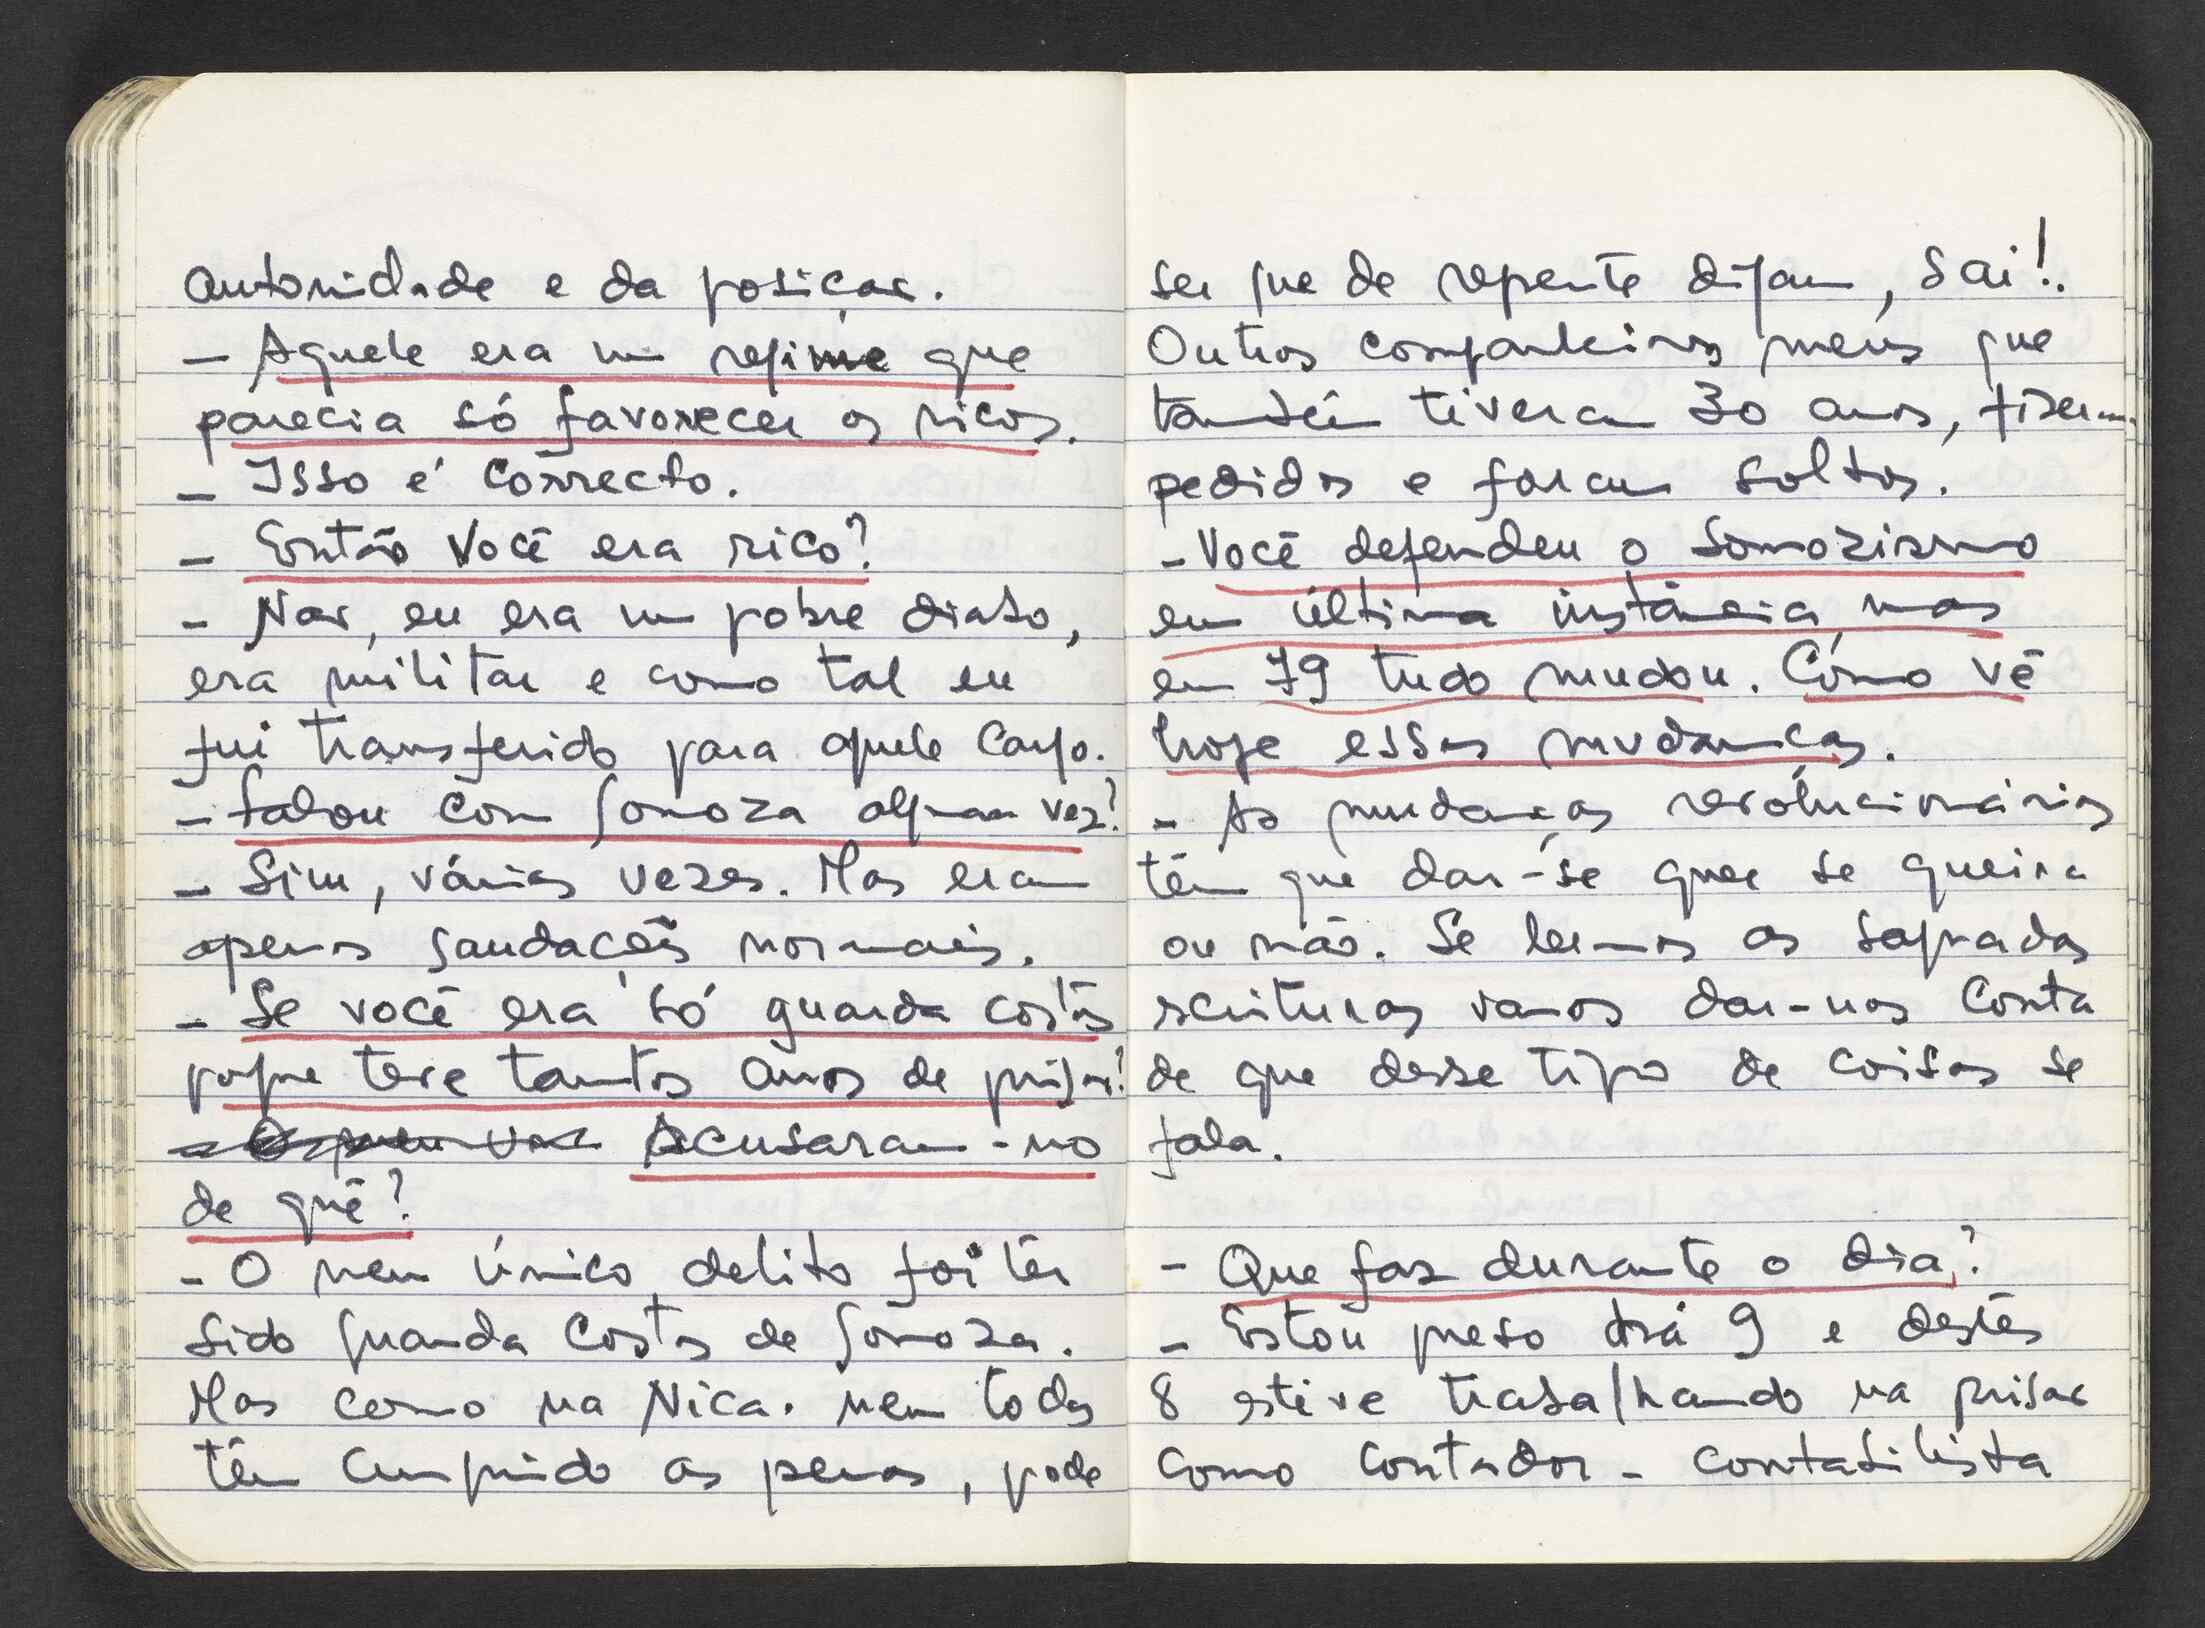 autoridade e da posição.
- Aquele era um regime que
parecia só favorecer os ricos.
- Isso é correcto.
- Então você era rico?
- Não, eu era um pobre diabo,
era militar e como tal eu
fui transferido para aquele cargo.
- falou com Somoza alguma vez?
- Sim, várias vezes. Mas eram
apenas saudações normais.
- Se você era só guarda costas
porque teve tantos anos de prisão?
Acusaram-no
de quê?
- O meu único delito foi ter
sido guarda costas de Somoza.
Mas como na Nica. nem todos
têm cumprido as penas, pode
ser que de repente digam, sai!.
Outros companheiros meus que
também tiveram 30 anos, fizeram
pedidos e foram soltos.
- Você defendeu o Somozismo
em última instância, mas
em 79 tudo mudou. Como vê
hoje essas mudanças.
- As mudanças revolucionárias
têm que dar-se quer se queira
ou não. Se lermos as sagradas
escrituras vamos dar-nos conta
de que desse tipo de coisas se
fala.
- Que faz durante o dia?
- Estou preso há 9 e destes
8 estive trabalhando na prisão
como contador - contabilista